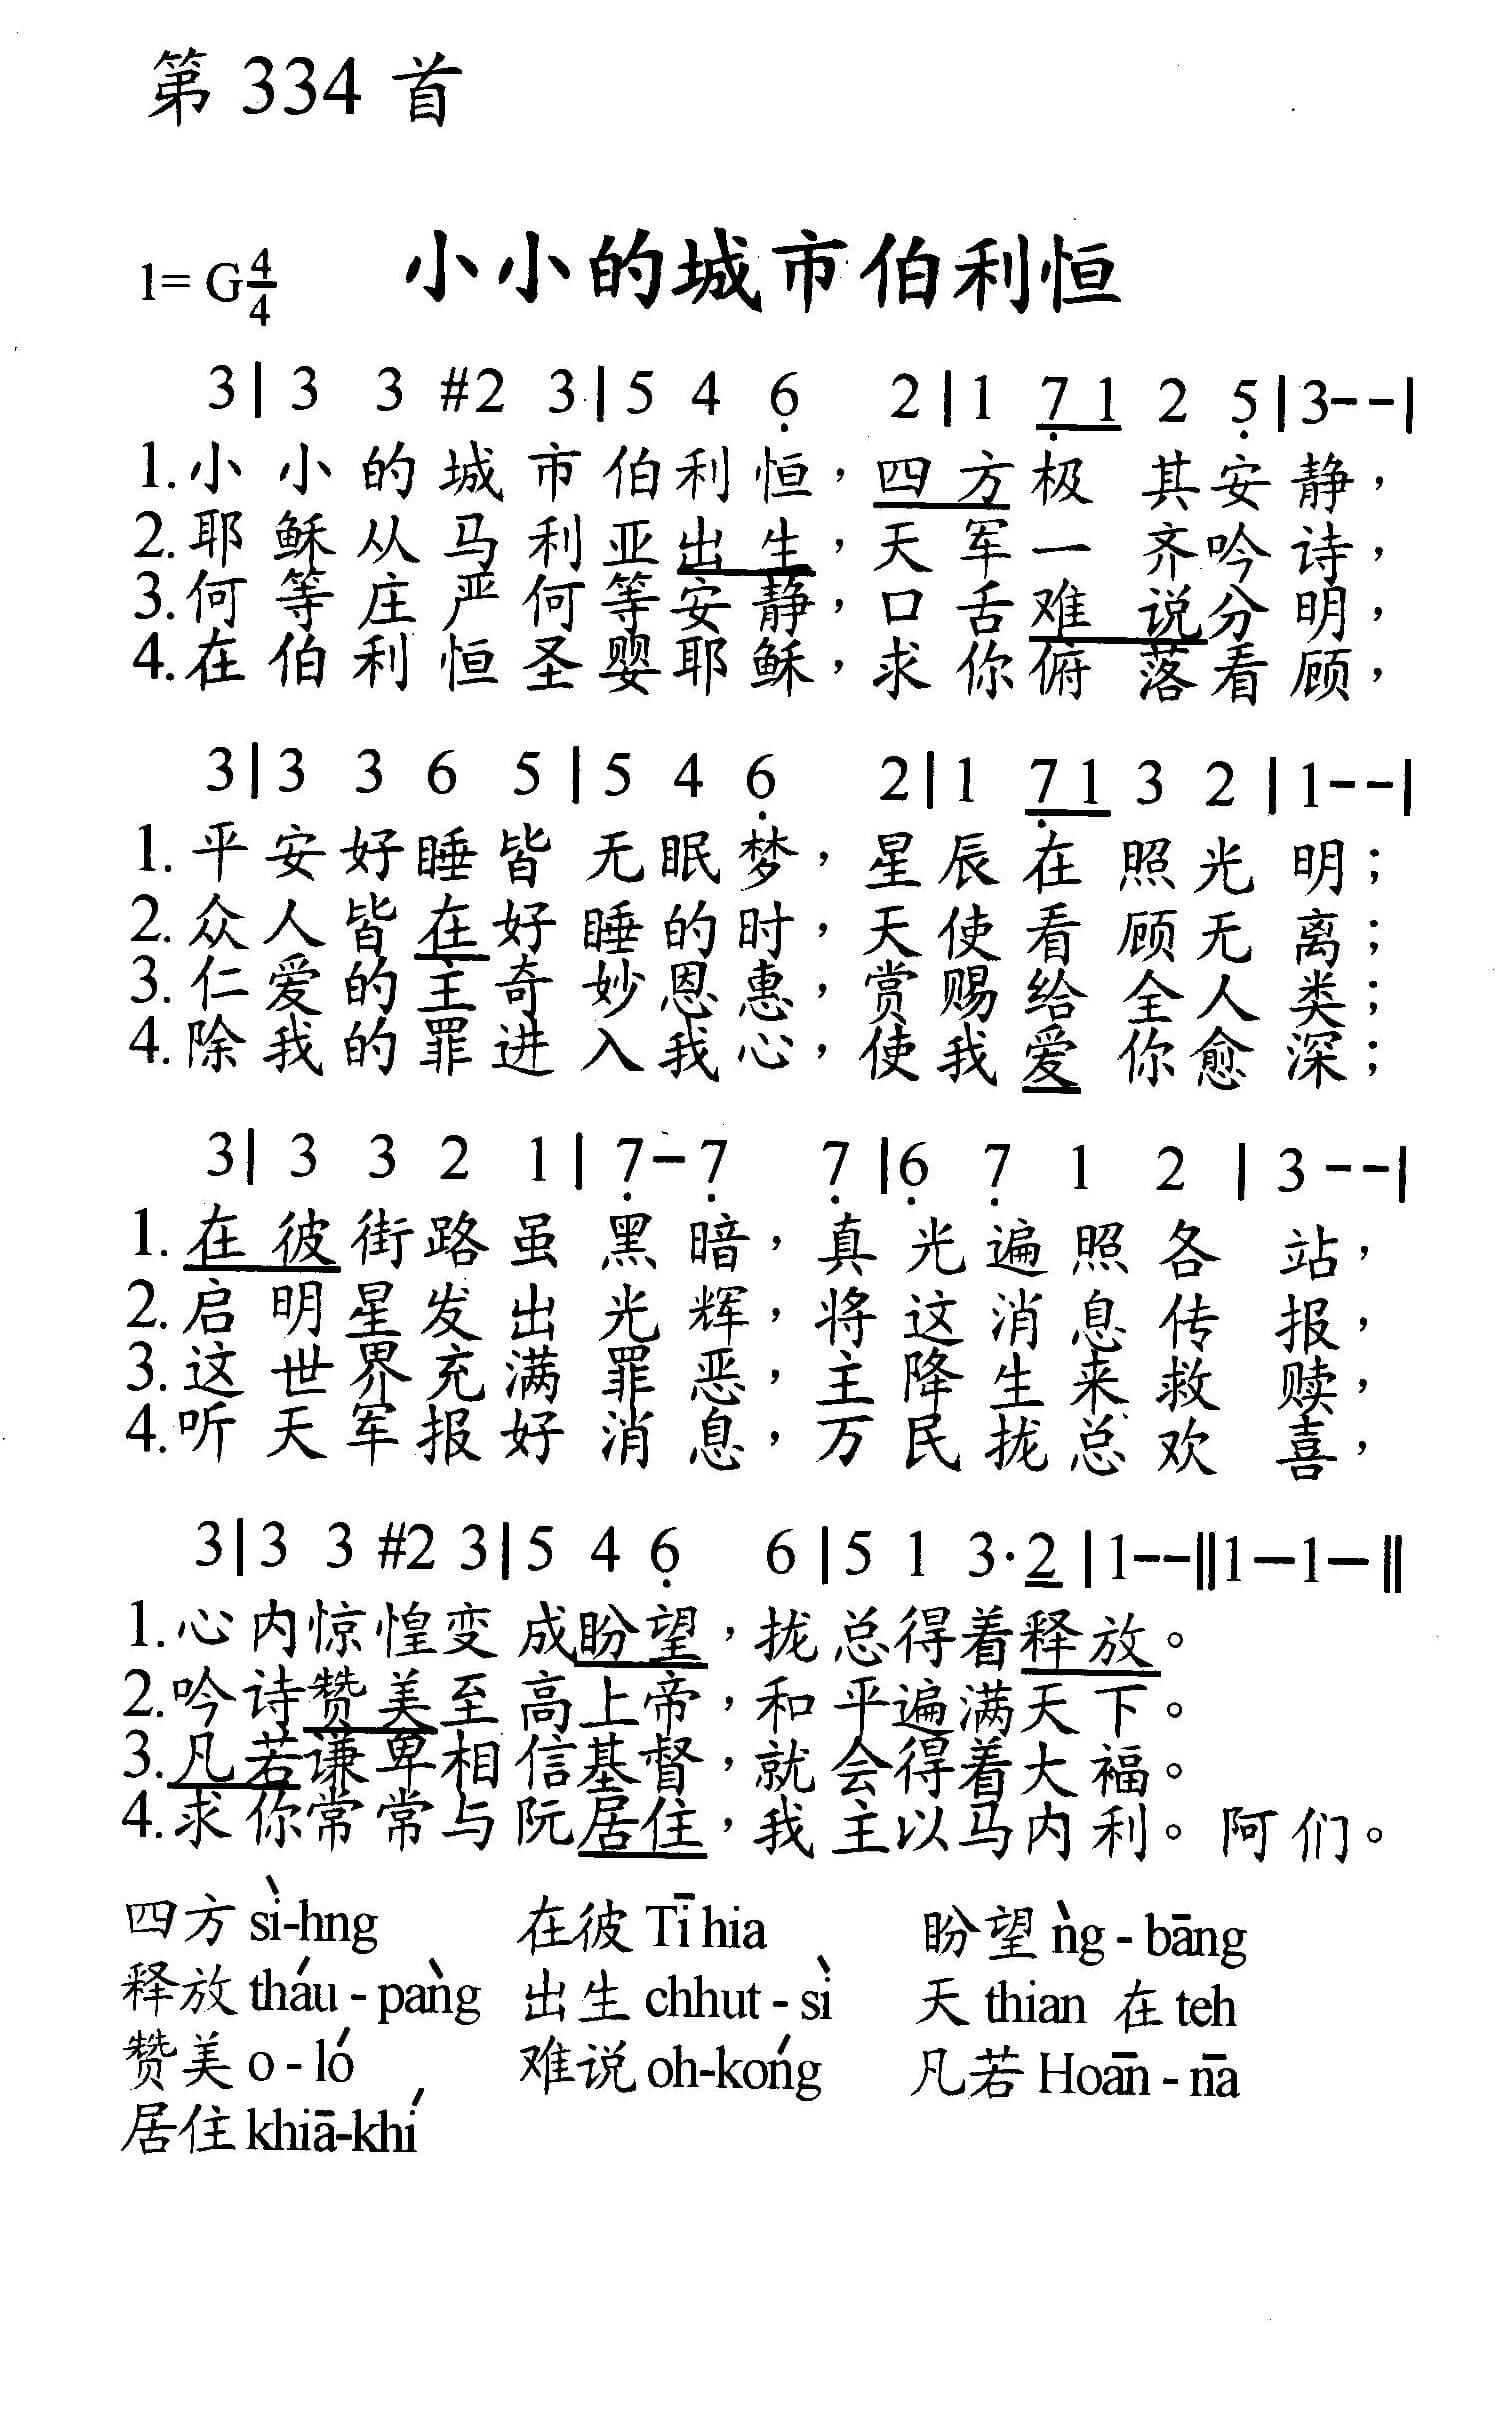 第 334 首
1= G 4/4 小小的城市伯利恒
3 | 3 3 #2 3 | 5 4 6̣ 2 | 1 7̣ 1 2 5̣ | 3 - - |
1. 小小的城市伯利恒，四方极其安静，
2. 耶稣从马利亚出生，天军一齐吟诗，
3. 何等庄严何等安静，口舌难说分明，
4. 在伯利恒圣婴耶稣，求你俯落看顾，
3 | 3 3 6 5 | 5 4 6̣ 2 | 1 7̣ 1 3 2 | 1 - - |
1. 平安好睡皆无眠梦，星辰在照光明；
2. 众人皆在好睡的时，天使看顾无离；
3. 仁爱的主奇妙恩惠，赏赐给全人类；
4. 除我的罪进入我心，使我爱你愈深；
3 | 3 3 2 1 | 7̣ - 7̣ 7̣ | 6̣ 7̣ 1 2 | 3 - - |
1. 在彼街路虽黑暗，真光遍照各站，
2. 启明星发出光辉，将这消息传报，
3. 这世界充满罪恶，主降生来救赎，
4. 听天军报好消息，万民拢总欢喜，
3 | 3 3 #2 3 | 5 4 6̣ 6 | 5 1 3· 2 | 1 - - ‖ 1 - 1 - ‖
1. 心内惊惶变成盼望，拢总得着释放。
2. 吟诗赞美至高上帝，和平遍满天下。
3. 凡若谦卑相信基督，就会得着大福。
4. 求你常常与阮居住，我主以马内利。阿们。
四方 sì-hng 在彼 Tī hia 盼望 ǹg - bāng
释放 tháu - pàng 出生 chhut - sì 天 thian 在 teh
赞美 o - ló 难说 oh-kóng 凡若 Hoān - nā
居住 khiā-khí